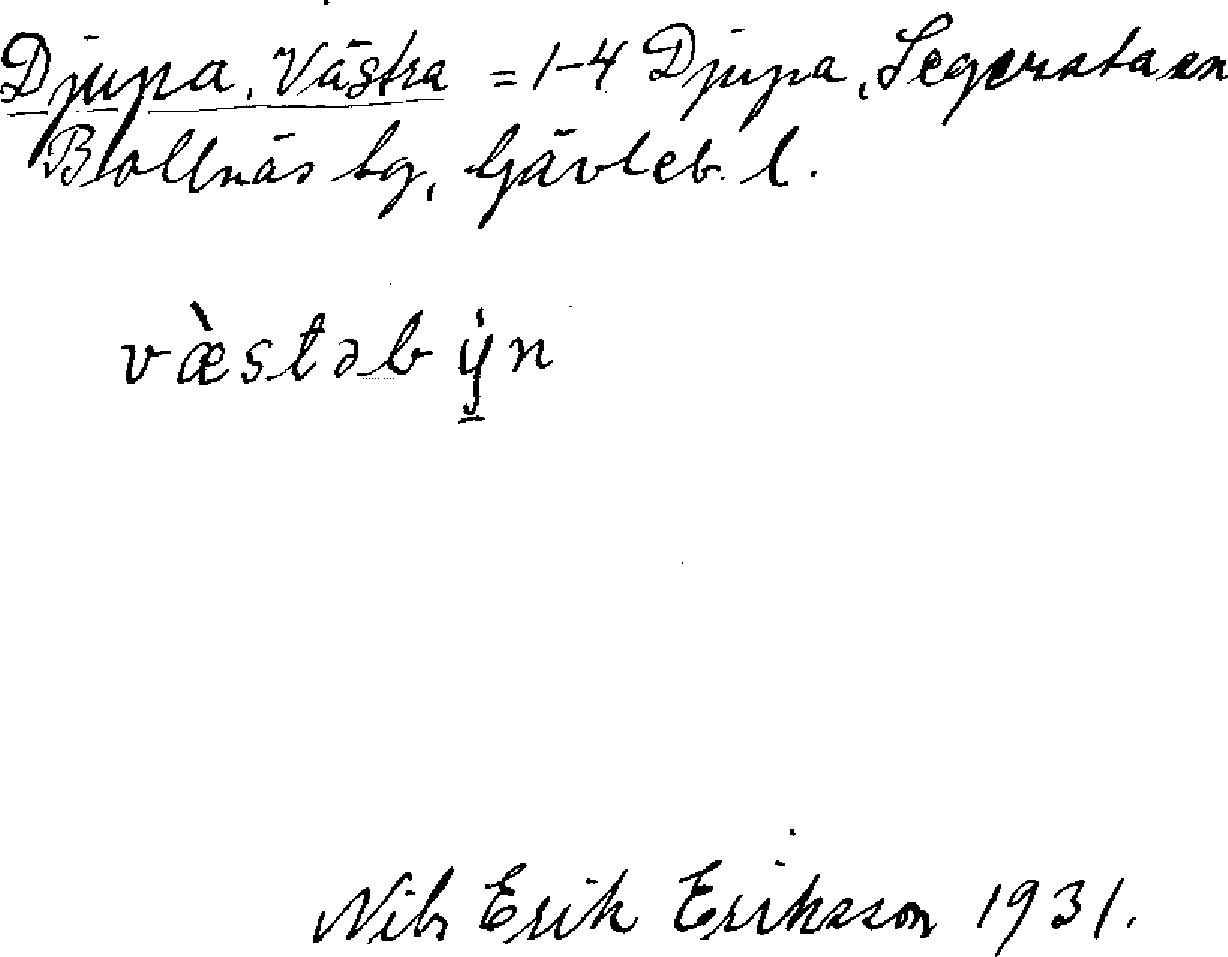 Djupa, Västra = 1-4 Djupa, Segersta sn
Bollnäs tg, Gävleb. l.
vàestəbẏ̠n
Nils Erik Eriksson 1931.